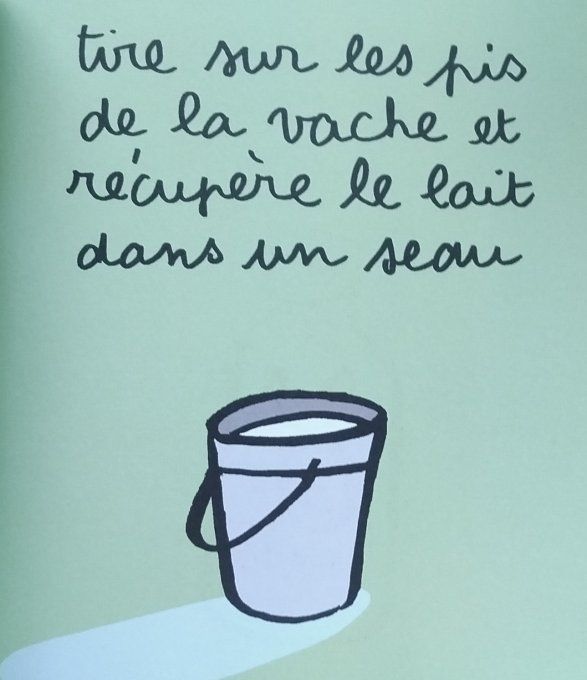 tire sur les pis
de la vache et
récupère le lait
dans un seau